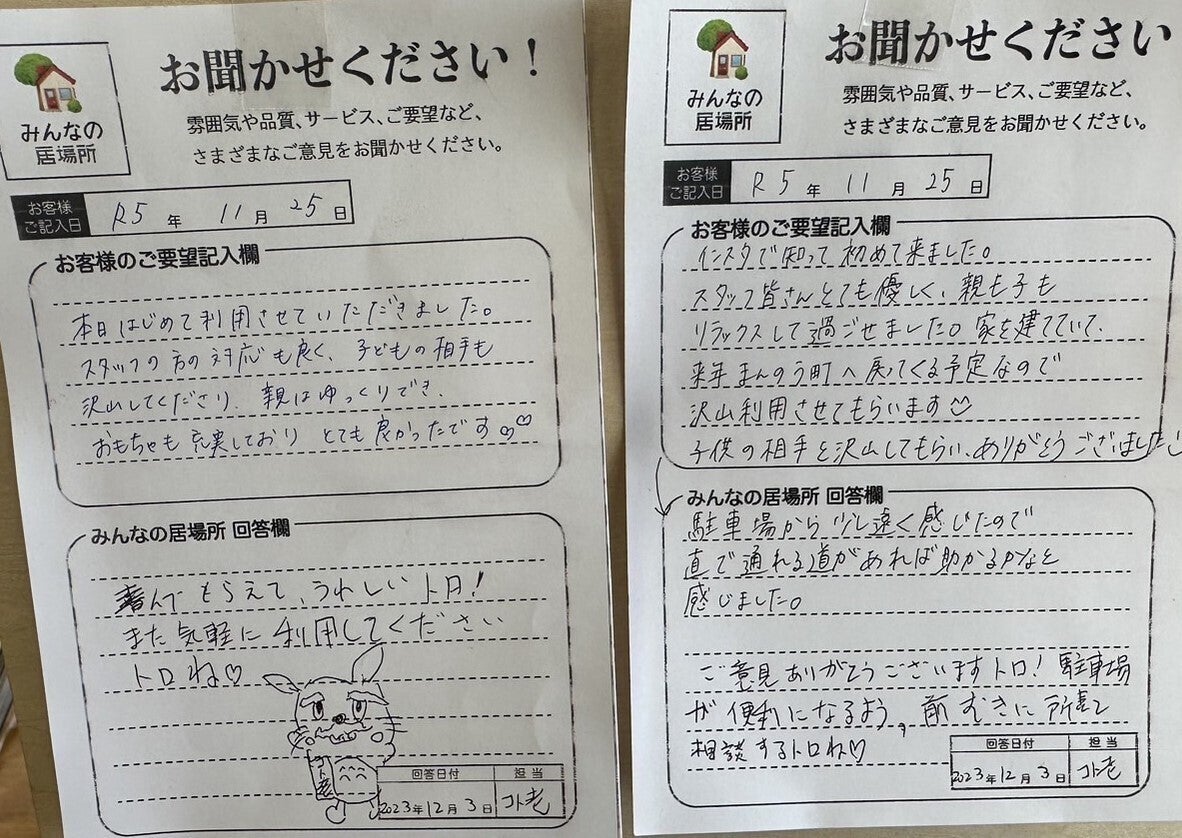 みんなの
居場所
お聞かせください！
雰囲気や品質、サービス、ご要望など、
さまざまなご意見をお聞かせください。
お客様
ご記入日
R5年 11月 25日
お客様のご要望記入欄
本日はじめて利用させていただきました。
スタッフの方の対応も良く、子どもの相手も
沢山してくださり、親はゆっくりでき、
おもちゃも充実しており とても良かったです♡♡
みんなの居場所 回答欄
喜んでもらえて、うれしいトロ!
また気軽に利用してください
トロね♡
回答日付
担当
2023年12月3日
コト老
みんなの
居場所
お聞かせください
雰囲気や品質、サービス、ご要望など、
さまざまなご意見をお聞かせください。
お客様
ご記入日
R5年 11月 25日
お客様のご要望記入欄
インスタで知って初めて来ました。
スタッフ皆さんとても優しく、親も子も
リラックスして過ごせました。家を建てていて、
来年まんのう町へ戻ってくる予定なので
沢山利用させてもらいます
子供の相手を沢山してもらい、ありがとうございました
みんなの居場所 回答欄
駐車場から少し遠く感じたので
直で通れる道があれば助かるかなと
感じました。
ご意見ありがとうございますトロ! 駐車場
が便利になるよう、前むきに所長と
相談するトロね♡
回答日付
担当
2023年12月3日
コト老